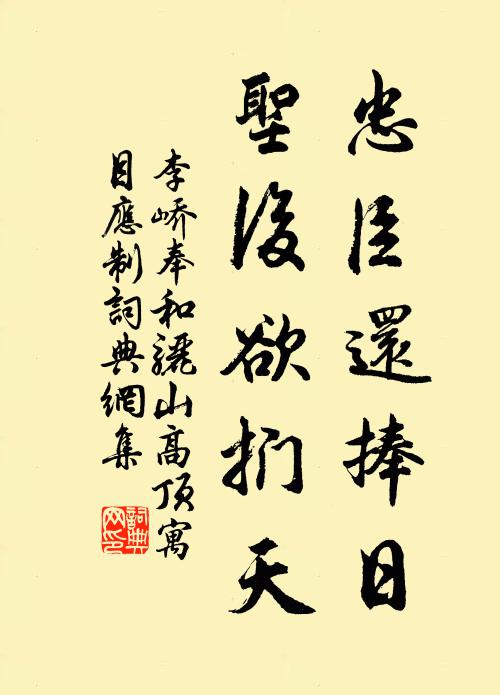 忠臣還捧日
聖後欲捫天
李嶠奉和驪山高頂寓
目應制詞典網集
詞典
网印